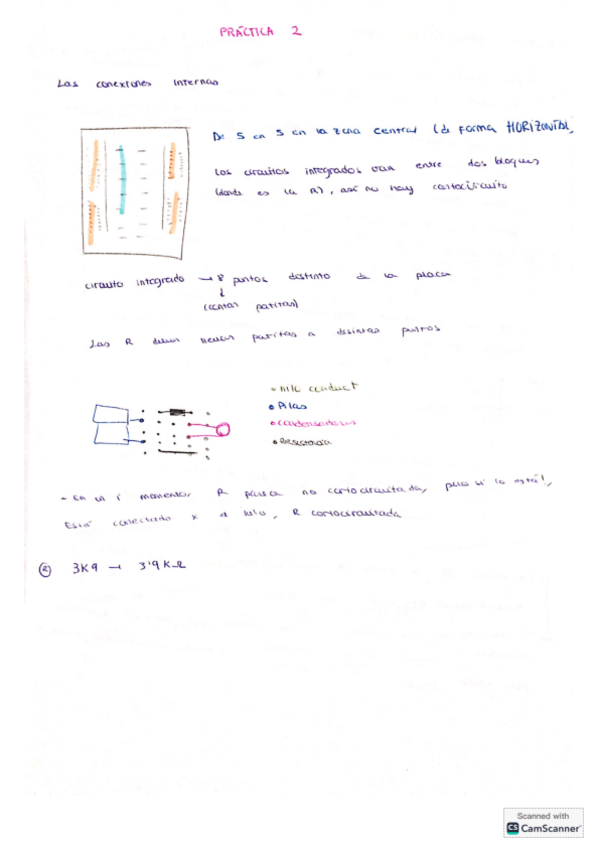 PRÁCTICA 2
Las conexiones internas
De 5 en 5 en la zona central (de forma HORIZONTAL,
Los circuitos integrados van entre dos bloques
(donde es la R), así no hay cortocircuito
circuito integrado → 8 puntos distinto de la placa
(contar patitas)
Las R deben patitas a distintos puntos
hilo conduct
Pilas
condensadores
Resistencia
- en un momento R parece no cortocircuitada, pero sí lo está!,
Está conectado x el hilo, R cortocircuitada
② 3K9 → 3'9 KΩ
Scanned with
CS CamScanner